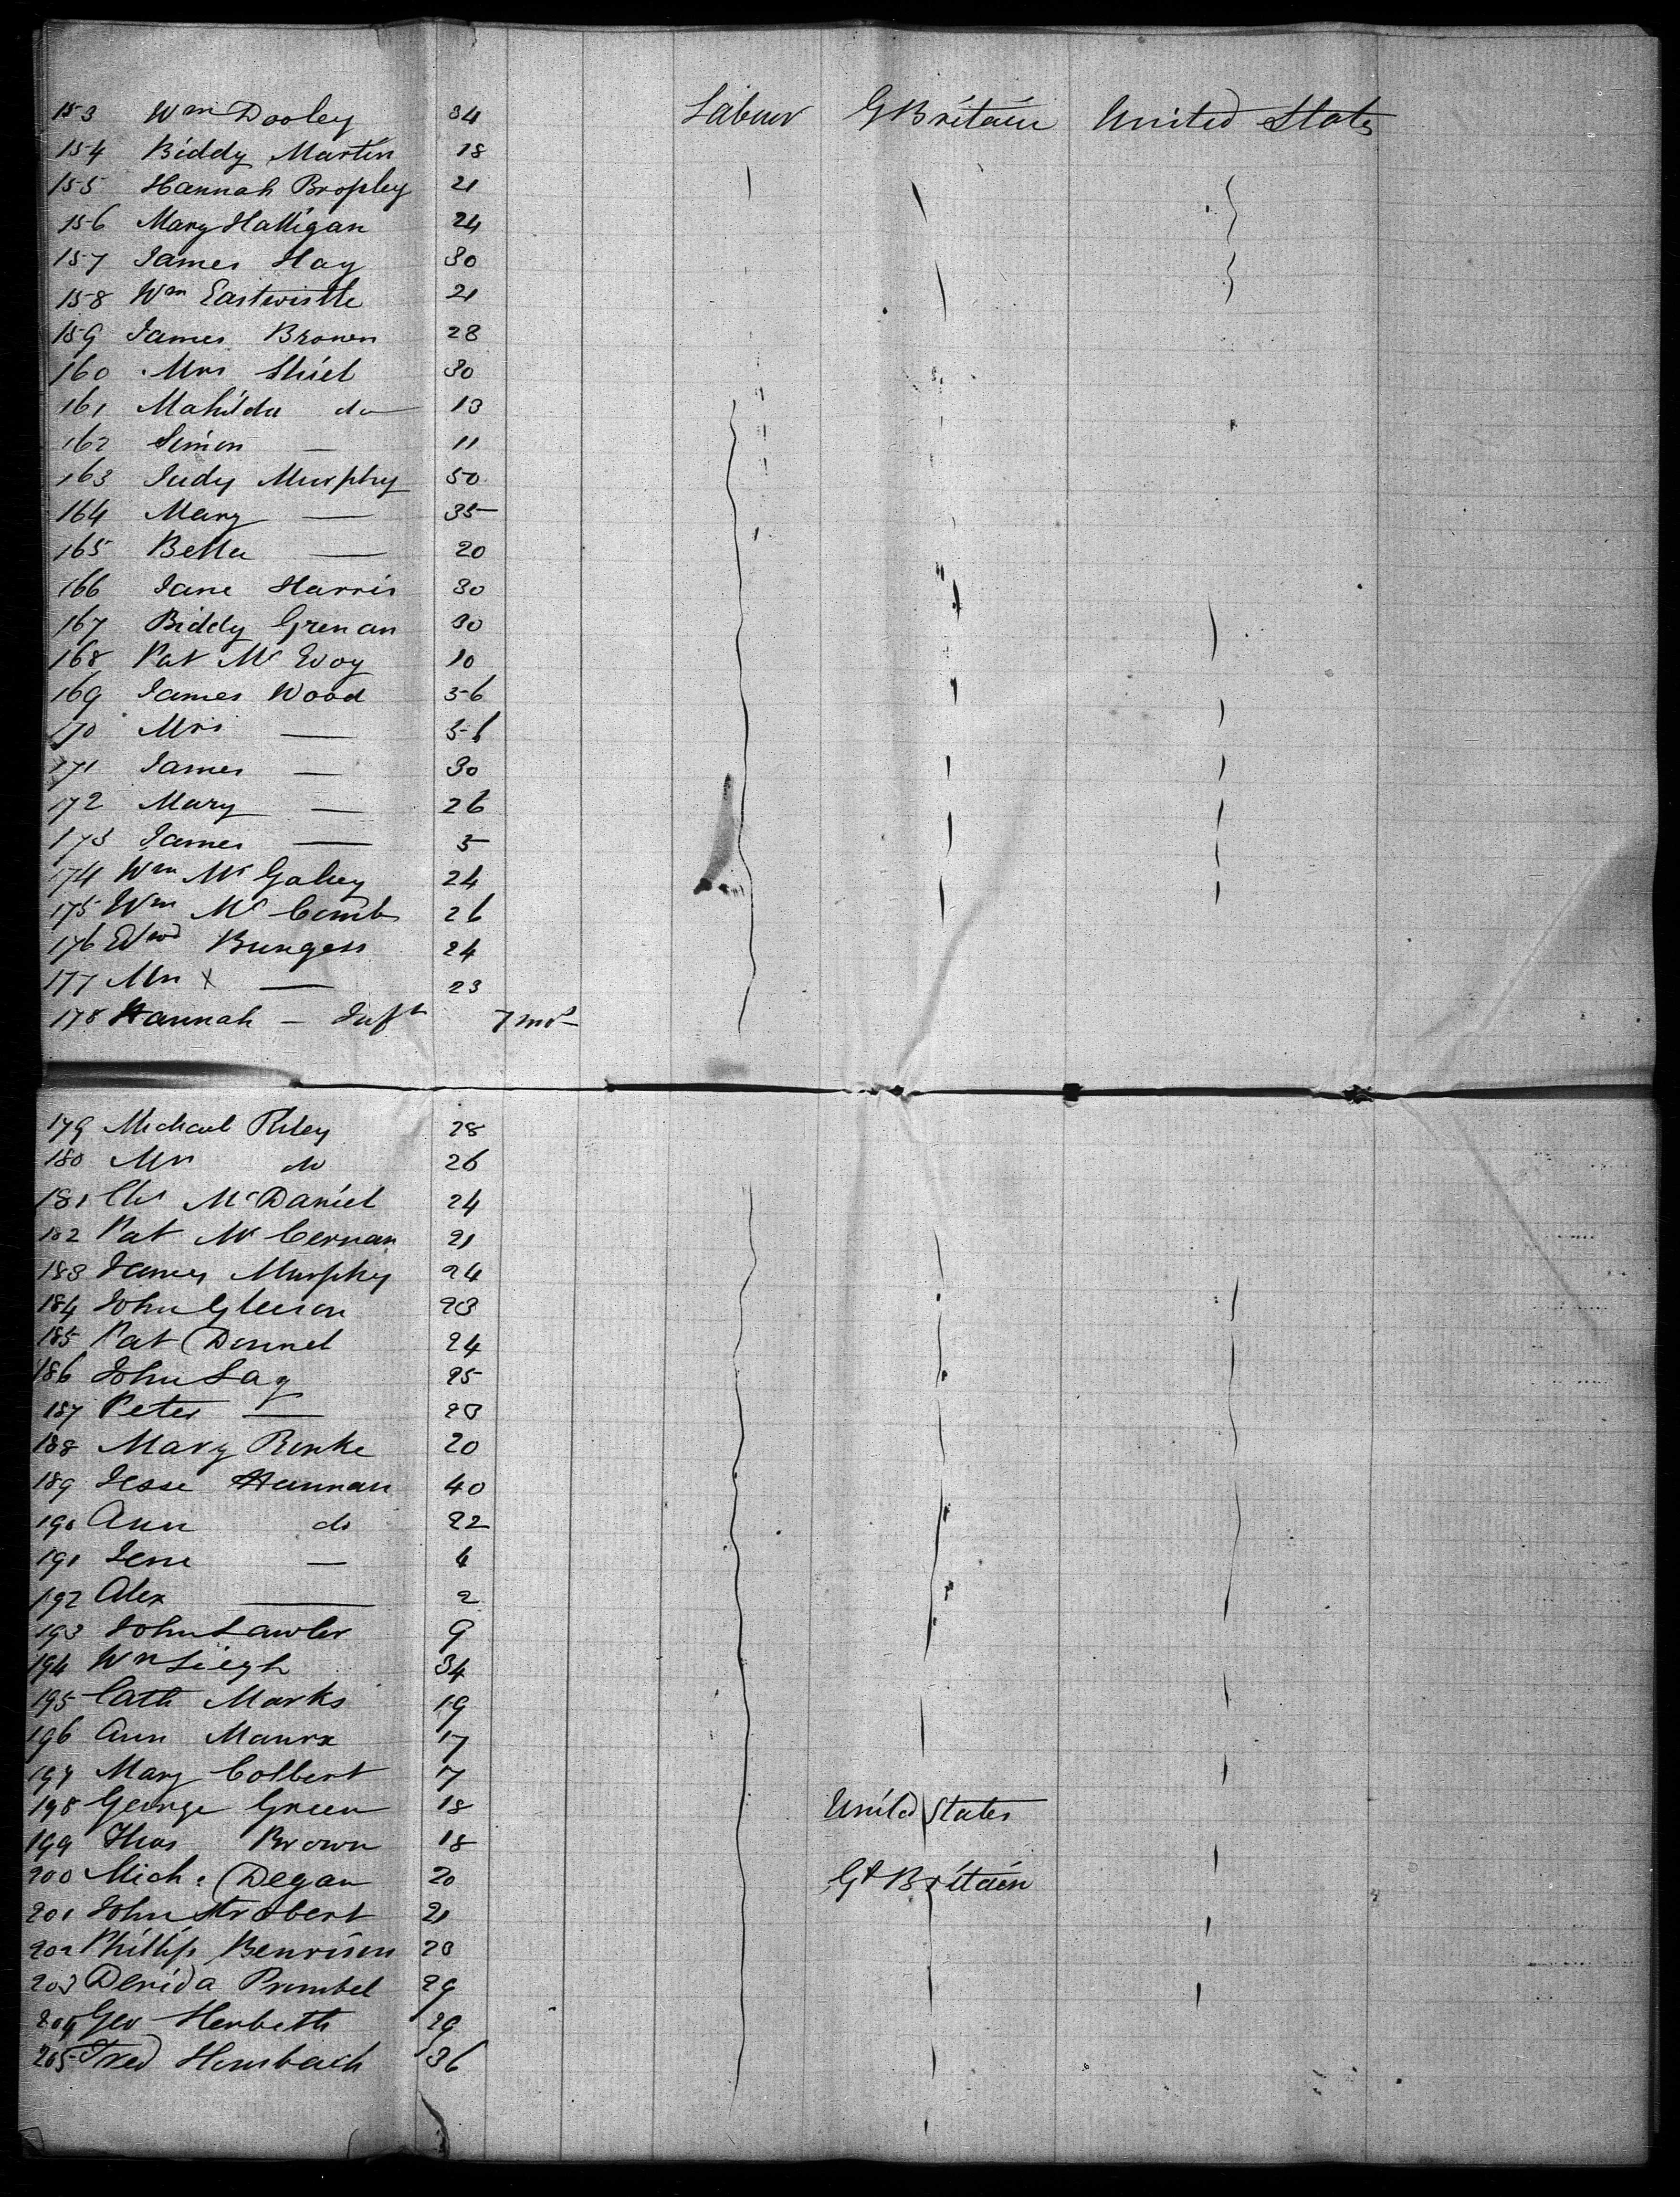 153 Wm Dooley 34 Labour G Britain United States
154 Biddy Martin 18
155 Hannah Bropley 21
156 Mary Halligan 24
157 James Hay 30
158 Wm Eastwistle 21
159 James Brown 28
160 Mrs Shiel 30
161 Mahilda do 13
162 Simon — 11
163 Judy Murphy 50
164 Mary — 35
165 Bella — 20
166 Jane Harris 30
167 Biddy Grenan 30
168 Pat Mc Evoy 10
169 James Wood 56
170 Mrs — 56
171 James — 30
172 Mary — 26
173 James — 5
174 Wm Mc Gahey 24
175 Wm Mc Comb 26
176 Edwd Burgess 24
177 Mrs x — 23
178 Hannah — Inft 7 mos
179 Michael Riley 28
180 Mrs do 26
181 Chs McDaniel 24
182 Pat Mc Cernan 21
183 James Murphy 24
184 John Gleeson 23
185 Pat Donnel 24
186 John Lay 25
187 Peter — 23
188 Mary Rourke 20
189 Jesse Hannan 40
190 Ann do 22
191 Jene — 4
192 Alex — 2
193 John Lawler 9
194 Wm Liegh 34
195 Cath Marks 19
196 Ann Manra 17
197 Mary Colbert 17
198 George Green 18 United States
199 Thos Brown 18
200 Mich: Degan 20 Gt Britain
201 John Strobert 21
202 Phillip Benrisen 23
203 Derida Prumbel 29
204 Geo Herbeth 29
205 Fred Hornbach 36